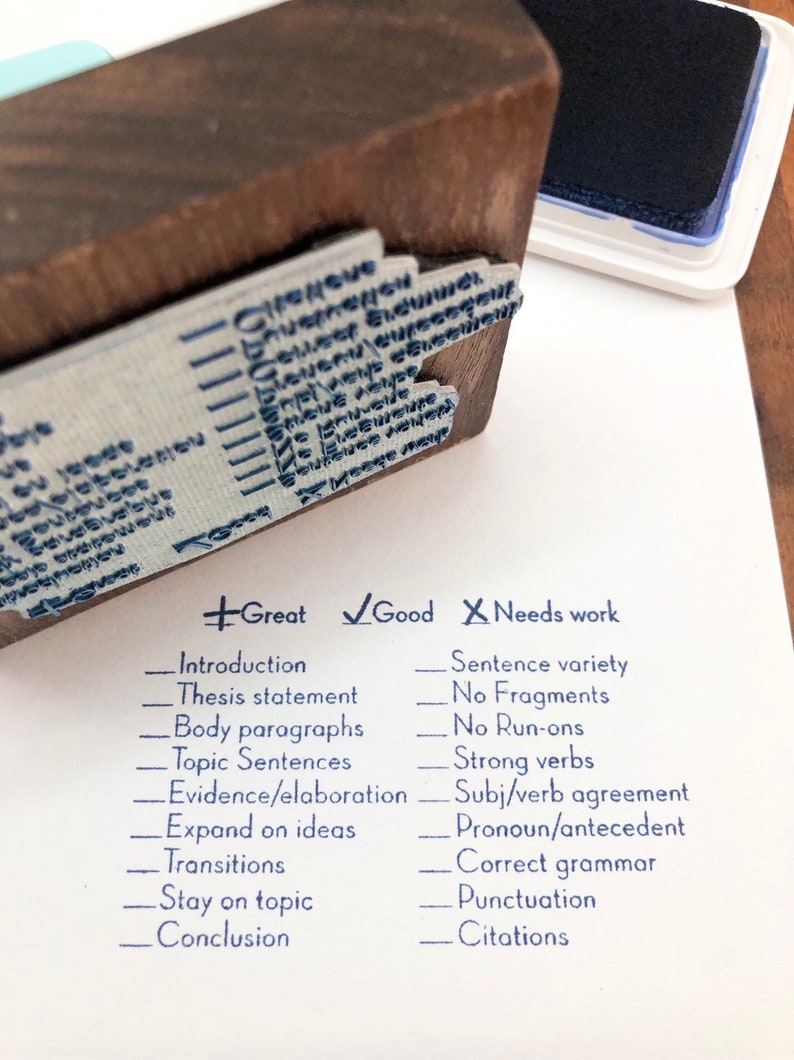 +Great ✓Good XNeeds work
__Introduction
__Thesis statement
__Body paragraphs
__Topic Sentences
__Evidence/elaboration
__Expand on ideas
__Transitions
__Stay on topic
__Conclusion
__Sentence variety
__No Fragments
__No Run-ons
__Strong verbs
__Subj/verb agreement
__Pronoun/antecedent
__Correct grammar
__Punctuation
__Citations